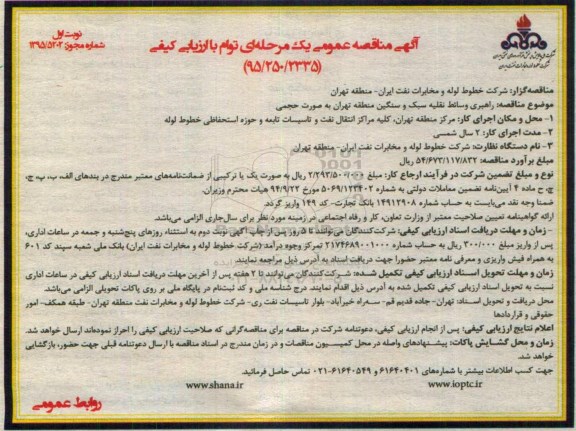 نوبت اول
شماره مجوز: ۱۳۹۵/۵۲۰۲
آگهی مناقصه عمومی یک مرحله‌ای توام با ارزیابی کیفی
(۹۵/۲۵۰/۲۳۳۵)
مناقصه‌گزار: شرکت خطوط لوله و مخابرات نفت ایران- منطقه تهران
موضوع مناقصه: راهبری وسائط نقلیه سبک و سنگین منطقه تهران به صورت حجمی
۱- محل و مکان اجرای کار: مرکز منطقه تهران، کلیه مراکز انتقال نفت و تاسیسات تابعه و حوزه استحفاظی خطوط لوله
۲- مدت اجرای کار: ۲ سال شمسی
۳- نام دستگاه نظارت: شرکت خطوط لوله و مخابرات نفت ایران- منطقه تهران
مبلغ برآورد مناقصه: ۵۴/۶۷۳/۱۱۷/۸۳۲ ریال
نوع و مبلغ تضمین شرکت در فرآیند ارجاع کار: مبلغ ۲/۲۹۳/۵۰۰/۰۰۰ ریال به صورت یک یا ترکیبی از ضمانت‌نامه‌های معتبر مندرج در بندهای الف، ب، پ، ج،
چ، ح ماده ۴ آیین‌نامه تضمین معاملات دولتی به شماره ۵۰۶۹/۱۲۳۴۰۲ مورخ ۹۴/۹/۲۲ هیات محترم وزیران.
ضمنا وجه نقد می‌بایست به حساب شماره ۱۴۹۱۲۹۰۸ بانک تجارت- کد ۱۴۹ واریز گردد.
ارائه گواهینامه تعیین صلاحیت معتبر از وزارت تعاون، کار و رفاه اجتماعی در زمینه مورد نظر برای سال‌جاری الزامی می‌باشد.
- زمان و مهلت دریافت اسناد ارزیابی کیفی: شرکت‌کنندگان می‌توانند تا ۵ روز پس از چاپ آگهی نوبت دوم به استثناء روزهای پنج‌شنبه و جمعه در ساعات اداری،
پس از واریز مبلغ ۳۰۰/۰۰۰ ریال به حساب شماره ۲۱۷۴۶۸۹۰۰۱۰۰۰ تمرکز وجوه درآمد (شرکت خطوط لوله و مخابرات نفت ایران) بانک ملی شعبه سپند کد ۶۰۱
به همراه فیش واریزی و معرفی نامه معتبر حضورا جهت دریافت اسناد به آدرس ذیل مراجعه نمایند.
زمان و مهلت تحویل اسناد ارزیابی کیفی تکمیل شده: شرکت‌کنندگان می‌توانند تا ۲ هفته پس از آخرین مهلت دریافت اسناد ارزیابی کیفی در ساعات اداری
نسبت به تحویل اسناد ارزیابی کیفی تکمیل شده به آدرس ذیل اقدام نمایند. درج شناسه ملی و کد ثبت‌نام در پایگاه ملی بر روی پاکات تحویلی الزامی می‌باشد.
محل دریافت و تحویل اسناد: تهران- جاده قدیم قم- سه‌راه خیرآباد- بلوار تاسیسات نفت ری- شرکت خطوط لوله و مخابرات نفت منطقه تهران- طبقه همکف- امور
حقوقی و قراردادها
اعلام نتایج ارزیابی کیفی: پس از انجام ارزیابی کیفی، دعوتنامه شرکت در مناقصه برای مناقصه‌گرانی که صلاحیت ارزیابی کیفی را احراز نموده‌اند ارسال خواهد شد.
زمان و محل گشایش پاکات: پیشنهادهای واصله در محل کمیسیون مناقصات و در زمان مندرج در اسناد مناقصه با ارسال دعوتنامه قبلی جهت حضور، بازگشایی
خواهد شد.
جهت کسب اطلاعات بیشتر با شماره‌های ۶۱۶۴۰۴۰۱ و ۶۱۶۴۰۵۴۹-۰۲۱ تماس حاصل فرمائید.
www.ioptc.ir www.shana.ir
روابط عمومی